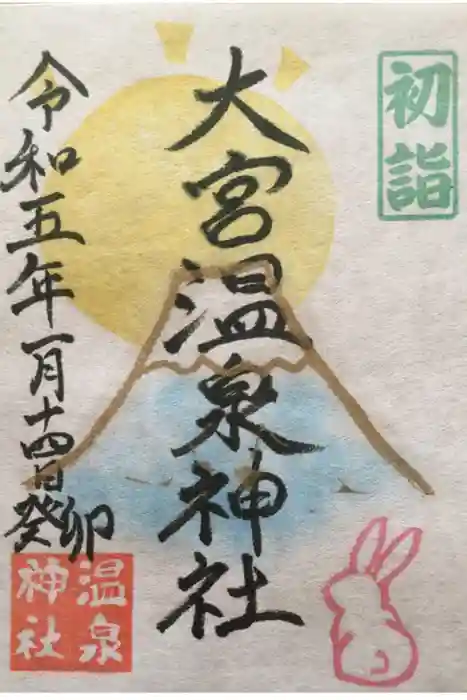 初詣
大宮温泉神社
令和五年一月十四日癸卯
温泉
神社